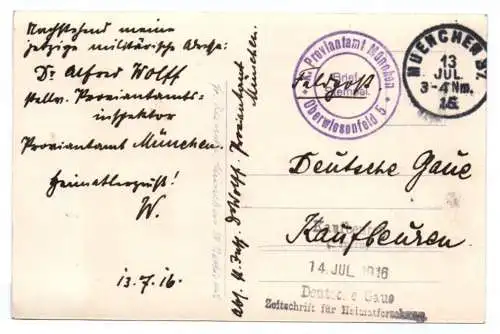 Nachstehend meine
jetzige militärische Adresse:
Dr Alfred Wolff
stellv. Proviantamts-
inspektor
Proviantamt München.
Heimatlergruß!
W.
13.7.16.
Abs. Proviantamt
München.
Proviantamt München
Brief
stempel
Oberwiesenfeld 5
Feldpost
MUENCHEN
13
JUL
3-4 Nm.
16
Deutsche Gaue
Kaufbeuren.
14 JUL. 1916
Deutsche Gaue
Zeitschrift für Heimatforschung.